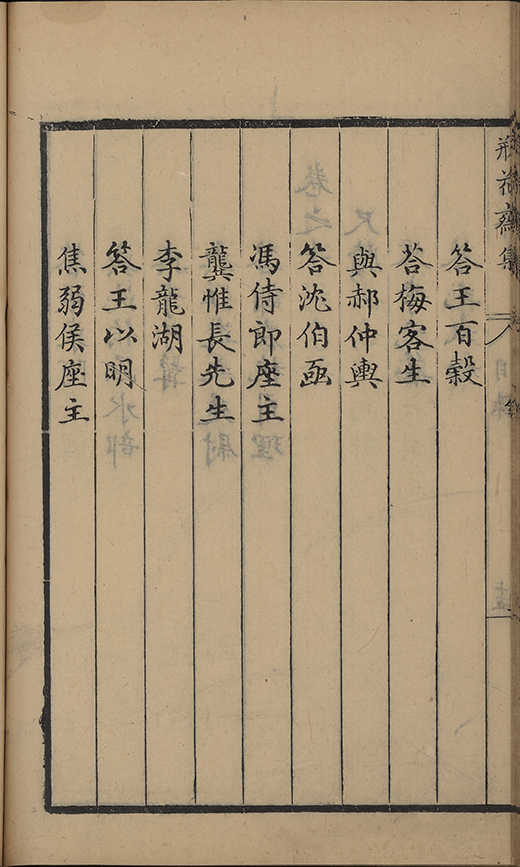 缾花齋集
答王百穀
荅梅客生
與郝仲輿
答沈伯函
馮侍郎座主
龔惟長先生
李龍湖
答王以明
焦弱侯座主